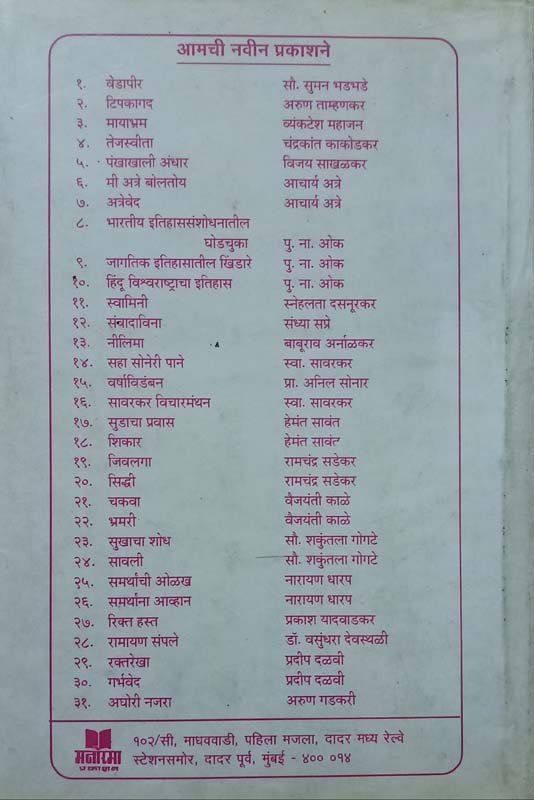 आमची नवीन प्रकाशने
१. वेडापीर सौ. सुमन भडभडे
२. टिपकागद अरुण ताम्हणकर
३. मायाभ्रम व्यंकटेश महाजन
४. तेजस्वीता चंद्रकांत काकोडकर
५. पंखाखाली अंधार विजय साखळकर
६. मी अत्रे बोलतोय आचार्य अत्रे
७. अत्रेवेद आचार्य अत्रे
८. भारतीय इतिहाससंशोधनातील
घोडचुका पु. ना. ओक
९. जागतिक इतिहासातील खिंडारे पु. ना. ओक
१०. हिंदू विश्वराष्ट्राचा इतिहास पु. ना. ओक
११. स्वामिनी स्नेहलता दसनूरकर
१२. संवादाविना संध्या सप्रे
१३. नीलिमा बाबूराव अर्नाळकर
१४. सहा सोनेरी पाने स्वा. सावरकर
१५. वर्षाविडंबन प्रा. अनिल सोनार
१६. सावरकर विचारमंथन स्वा. सावरकर
१७. सुडाचा प्रवास हेमंत सावंत
१८. शिकार हेमंत सावंत
१९. जिवलगा रामचंद्र सडेकर
२०. सिद्धी रामचंद्र सडेकर
२१. चकवा वैजयंती काळे
२२. भ्रमरी वैजयंती काळे
२३. सुखाचा शोध सौ. शकुंतला गोगटे
२४. सावली सौ. शकुंतला गोगटे
२५. समर्थांची ओळख नारायण धारप
२६. समर्थांना आव्हान नारायण धारप
२७. रिक्त हस्त प्रकाश यादवाडकर
२८. रामायण संपले डॉ. वसुंधरा देवस्थळी
२९. रक्तरेखा प्रदीप दळवी
३०. गर्भवेद प्रदीप दळवी
३१. अघोरी नजरा अरुण गडकरी
मनोरमा
प्रकाशन
१०२/सी, माधववाडी, पहिला मजला, दादर मध्य रेल्वे
स्टेशनसमोर, दादर पूर्व, मुंबई - ४०० ०१४